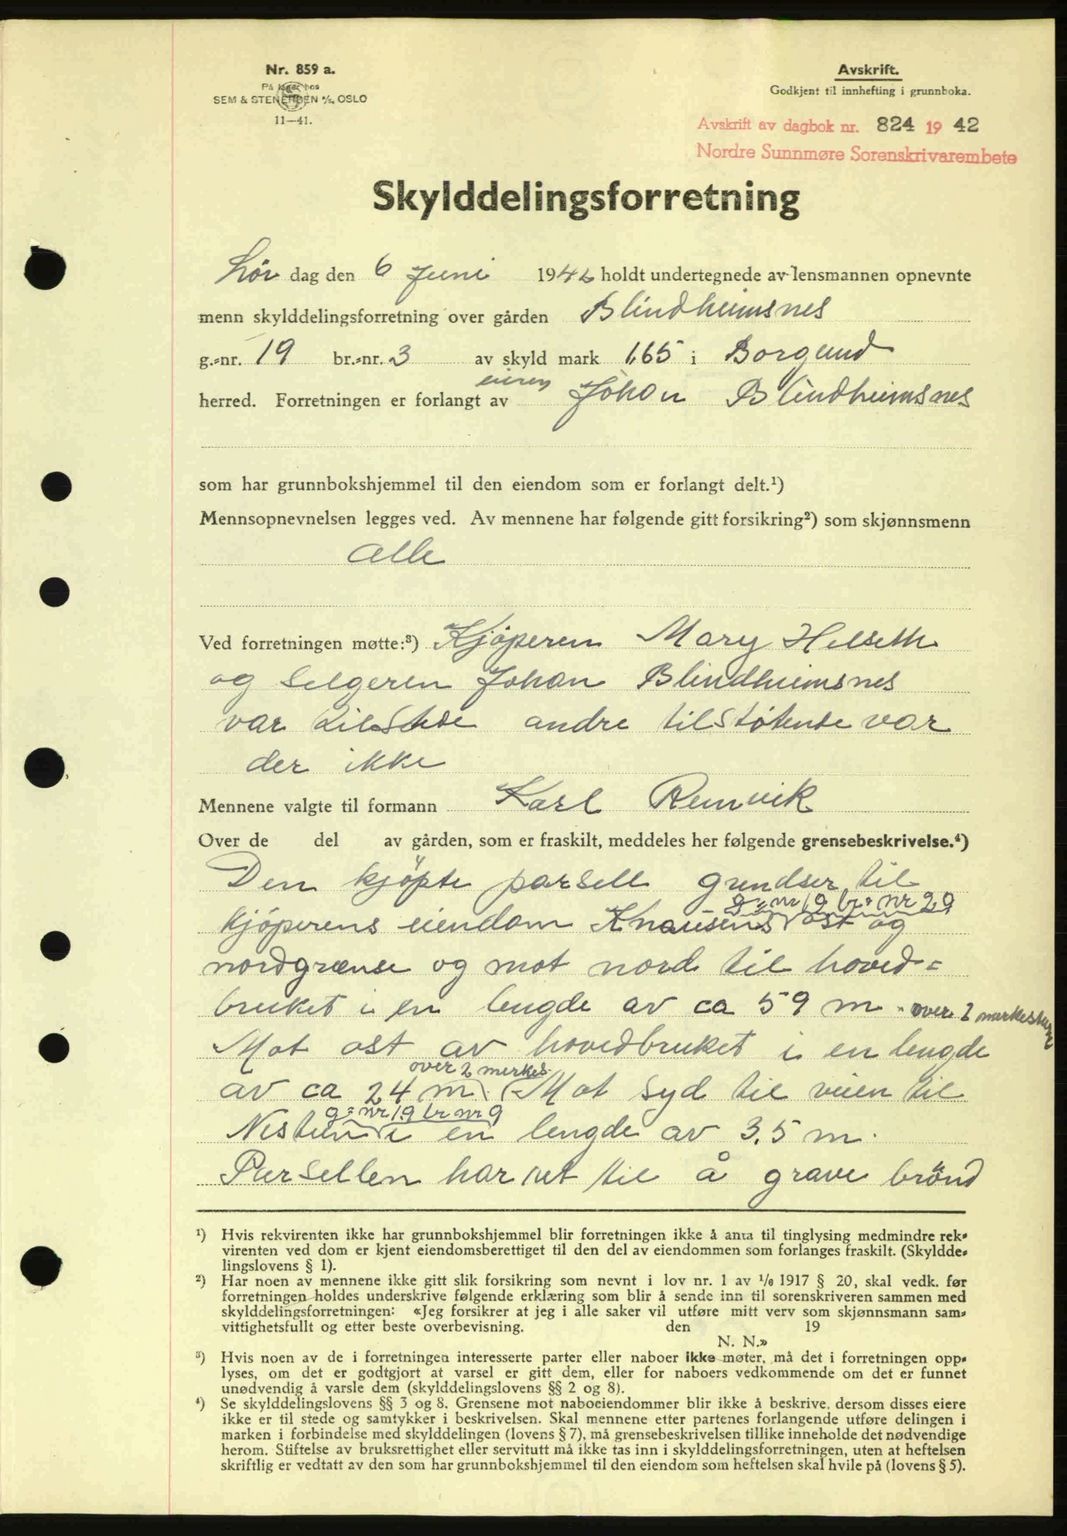 Nr. 859 a.
På lager hos
SEM & STENERSEN A/S, OSLO
11—41.
Avskrift.
Godkjent til innhefting i grunnboka.
Avskrift av dagbok nr. 824 19 42
Nordre Sunnmøre Sorenskrivarembete
Skylddelingsforretning
Lør dag den 6 Juni 1942 holdt undertegnede av lensmannen opnevnte
menn skylddelingsforretning over gården Blindheimsnes
g.-nr. 19 br.-nr. 3 av skyld mark 1,65 i Borgund
herred. Forretningen er forlangt av eieren Johan Blindheimsnes
som har grunnbokshjemmel til den eiendom som er forlangt delt.¹)
Mennsopnevnelsen legges ved. Av mennene har følgende gitt forsikring²) som skjønnsmenn
Alle
Ved forretningen møtte:³) Kjøperen Mary Helseth
og Selgeren Johan Blindheimsnes
var tilstede andre tilstøtende var
der ikke
Mennene valgte til formann Karl Remvik
Over de del av gården, som er fraskilt, meddeles her følgende grensebeskrivelse.⁴)
Den kjöpte parsell grendser til
g=nr 19 br=nr 29
kjøperens eiendom Knausens ost og
nordgrænse og mot nord til hoved=
bruket i en lengde av ca 59 m. over 2
Mot ost av hovedbruket i en lengde
over 2 merkes.
av ca 24 m. Mot syd til veien til
g=nr 19 br nr 9
i en lengde av 3,5 m.
Parsellen har ret til å grave brönd
¹) Hvis rekvirenten ikke har grunnbokshjemmel blir forretningen ikke å anta til tinglysing medmindre rek-
virenten ved dom er kjent eiendomsberettiget til den del av eiendommen som forlanges fraskilt. (Skyldde-
lingslovens § 1).
²) Har noen av mennene ikke gitt slik forsikring som nevnt i lov nr. 1 av ¹/₆ 1917 § 20, skal vedk. før
forretningen holdes underskrive følgende erklæring som blir å sende inn til sorenskriveren sammen med
skylddelingsforretningen: «Jeg forsikrer at jeg i alle saker vil utføre mitt verv som skjønnsmann sam-
vittighetsfullt og etter beste overbevisning. den 19
N. N.»
³) Hvis noen av de i forretningen interesserte parter eller naboer ikke møter, må det i forretningen opp-
lyses, om det er godtgjort at varsel er gitt dem, eller for naboers vedkommende om det er funnet
unødvendig å varsle dem (skylddelingslovens §§ 2 og 8).
⁴) Se skylddelingslovens §§ 3 og 8. Grensene mot naboeiendommer blir ikke å beskrive, dersom disses eiere
ikke er til stede og samtykker i beskrivelsen. Skal mennene etter partenes forlangende utføre delingen i
marken i forbindelse med skylddelingen (lovens § 7), må grensebeskrivelsen tillike inneholde det nødvendige
herom. Stiftelse av bruksrettighet eller servitutt må ikke tas inn i skylddelingsforretningen, uten at heftelsen
skriftlig er vedtatt av den som har grunnbokshjemmel til den eiendom som heftelsen skal hvile på (lovens § 5).